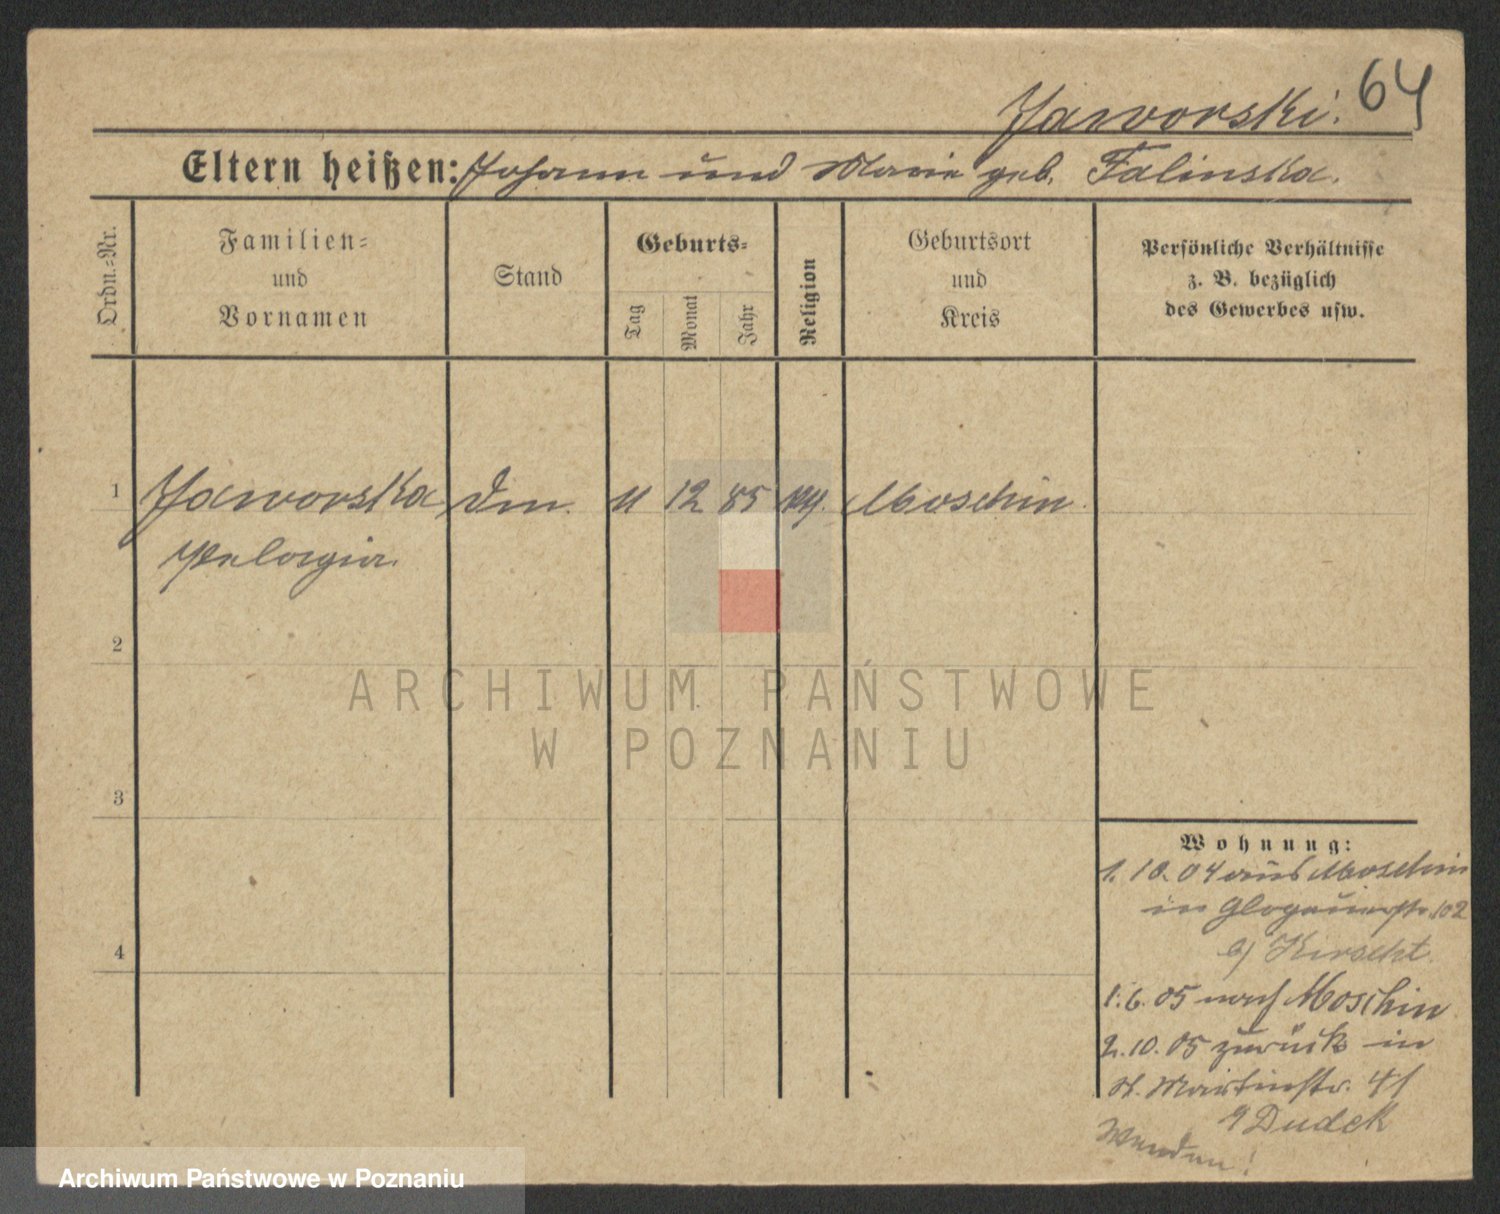 64
Jaworski.
Eltern heißen: Johann und Marie geb. Falinska.
Ordn.-Nr.
Familien-
und
Vornamen
Stand
Geburts-
Tag
Monat
Jahr
Religion
Geburtsort
und
Kreis
Persönliche Verhältnisse
z. B. bezüglich
des Gewerbes usw.
1 Jaworska 12 85 Moschin
Pelagia
2
3
4
ARCHIWUM PAŃSTWOWE
W POZNANIU
Wohnung:
1. 10. 04 aus Moschin
in Glogauerstr. 102
b/ Kirscht.
1. 6. 05 nach Moschin
2. 10. 05 zurück in
St. Martinstr. 41
Dudek
Wenden!
Archiwum Państwowe w Poznaniu